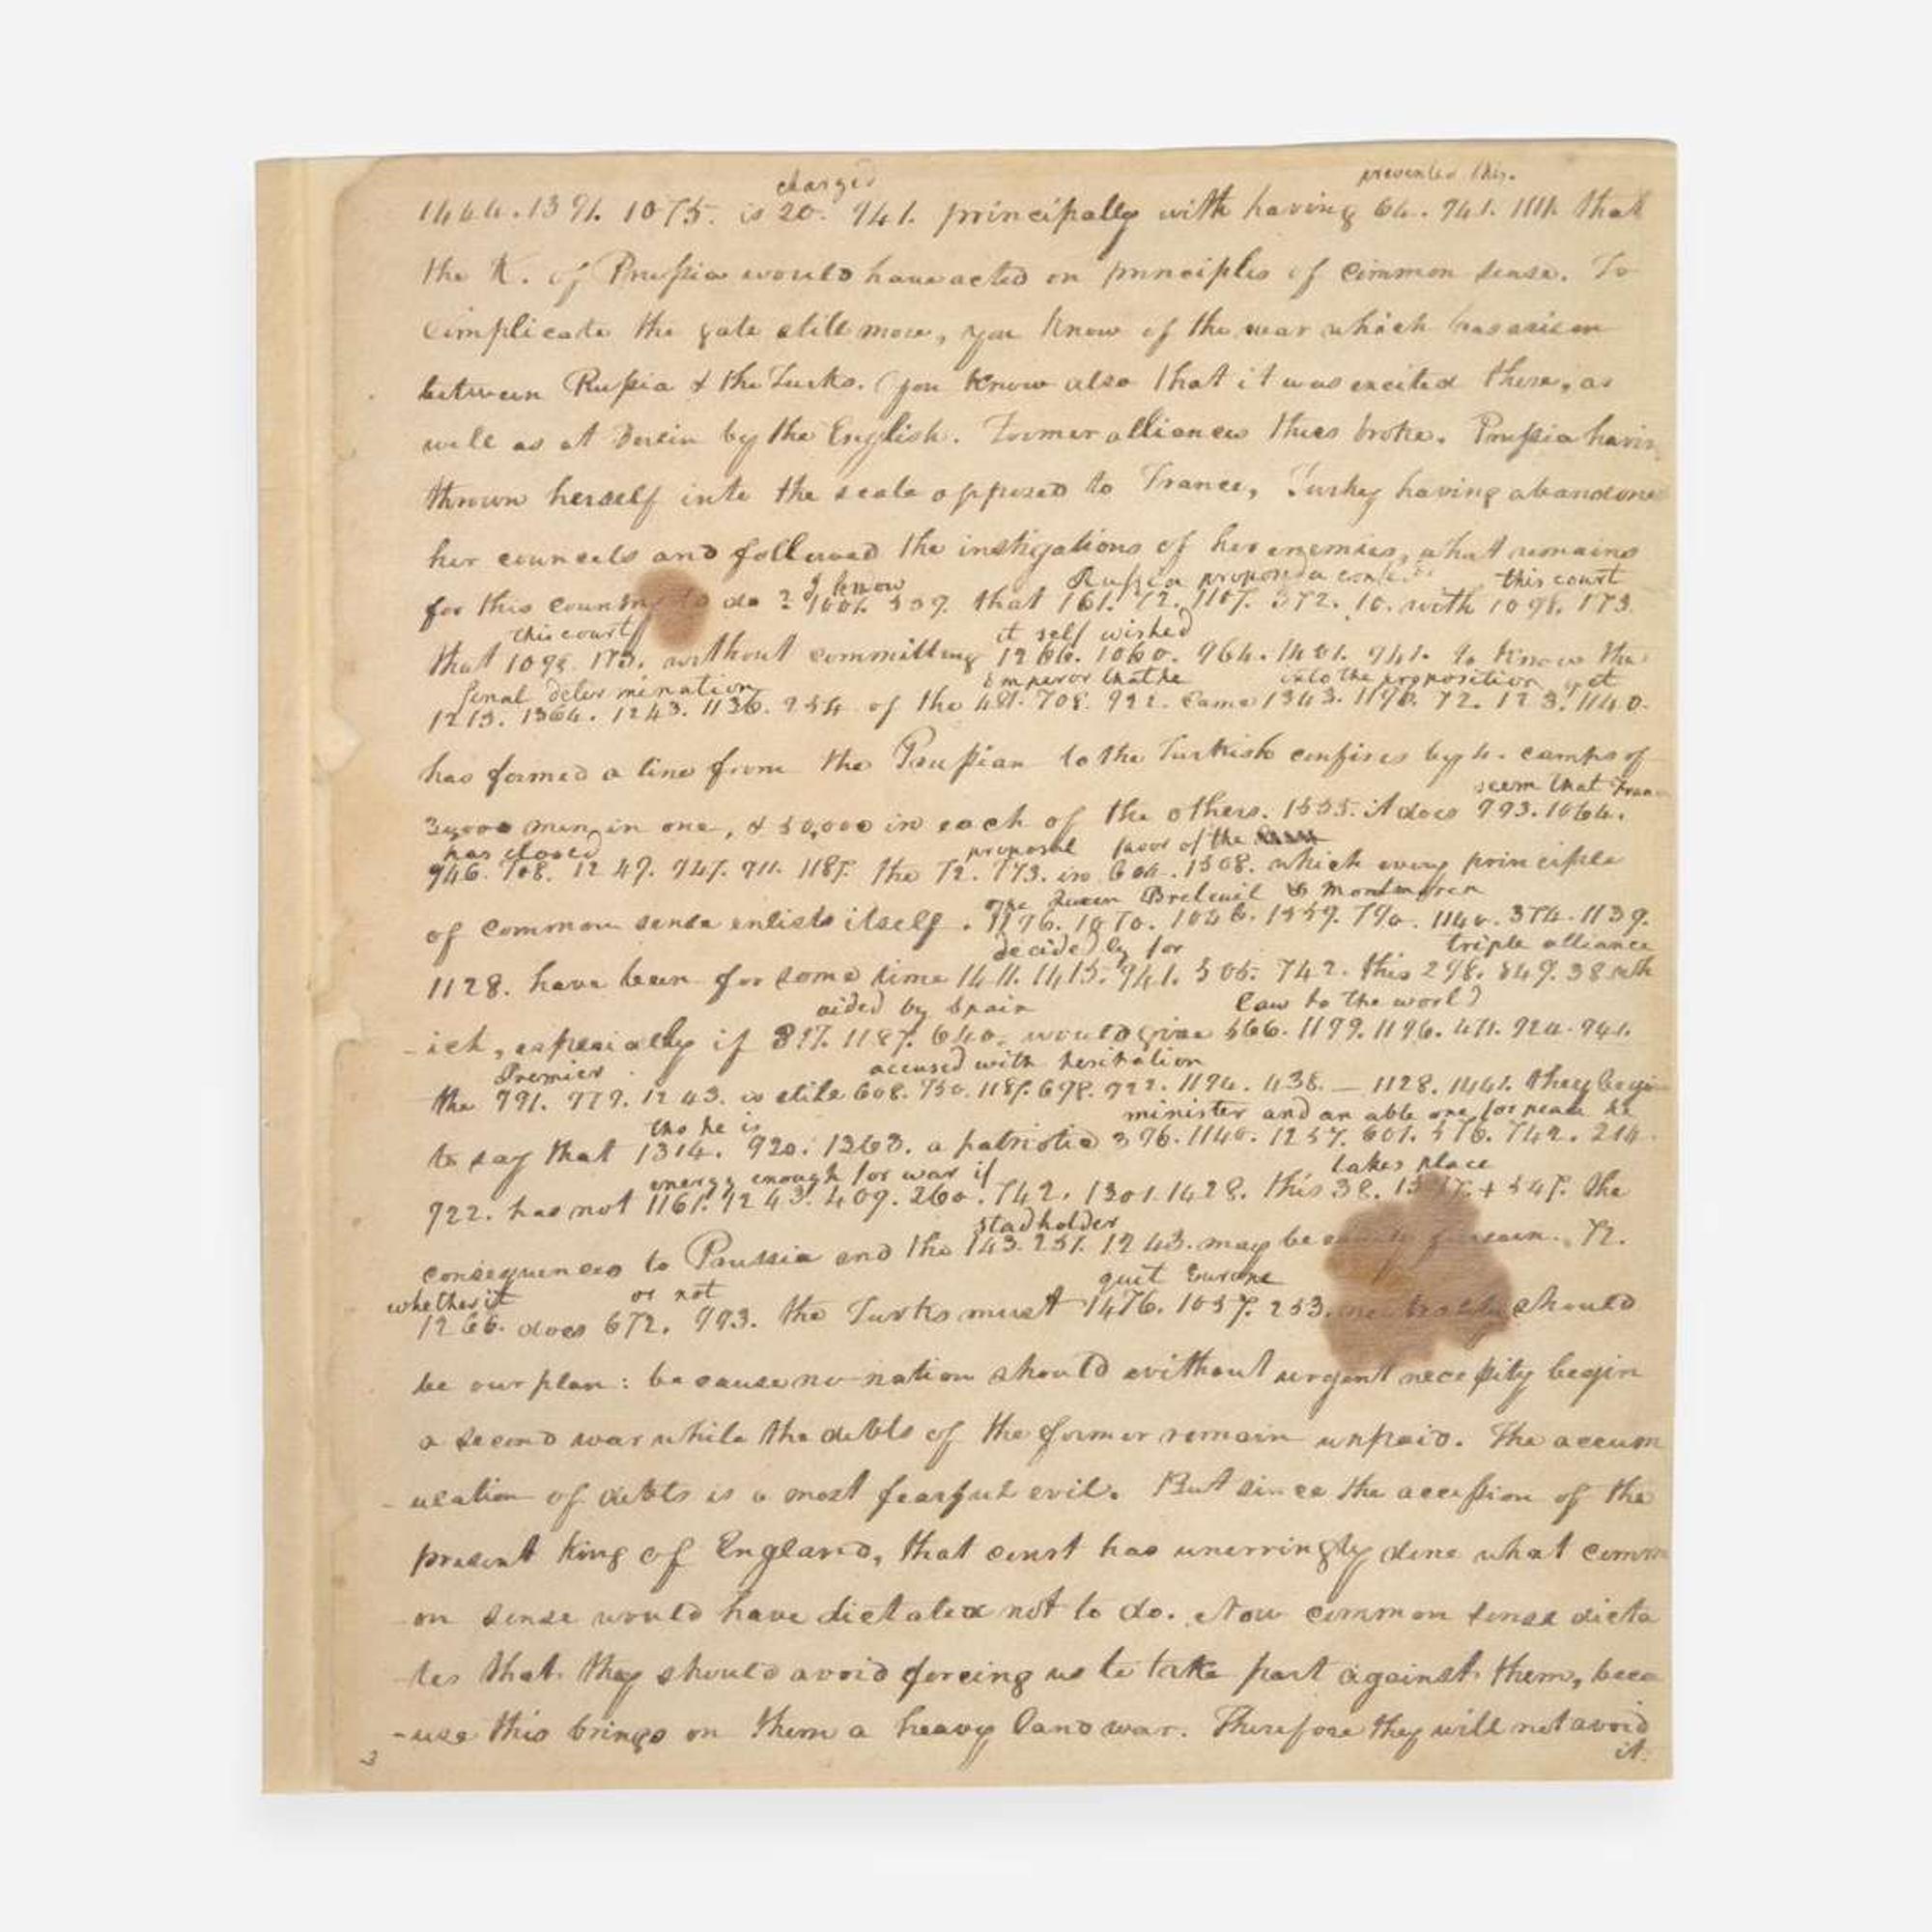 charged prevented this.
1444. 1391. 1075. is 20. 941. principally with having 64. 941. 1111. that
the K. of Prussia would have acted on principles of common sense. To
complicate the game still more, you know of the war which has arisen
between Russia & the Turks. (you know also that it was excited there, as
well as at Berlin by the English. Former alliances thus broke. Prussia havin
thrown herself into the scale opposed to France, Turkey having abandone
her councels and followed the instigations of her enemies, what remains
I know Russia proposed a this court
for this country to do? 1001. 539. that 161. 72. 1107. 372. 10. with 1098. 173.
this court it self wished
that 1098. 173. without committing 1266. 1060. 964. 1421. 941. to know the
final determination Emperor that he into the proposition yet
1213. 1364. 1243. 1136. 254 of the 481. 708. 922. came 1343. 1196. 72. 123. 1140.
has formed a line from the Prussian to the Turkish confines by 4. camps of
seem that Fran
30,000 men in one, & 50,000 in each of the others. 1555. it does 993. 1064.
has closed proposal favor of the
946. 708. 1249. 947. 911. 1187. the 72. 773. in 604. 1508. which every principle
The Queen Breteuil & Montmorin
of common sense enlists itself. 1196. 1070. 1046. 1559. 790. 1140. 374. 1139.
decidedly for triple alliance
1128. have been for some time 1411. 1415. 941. 505. 742. this 298. 849. 38 wh
aided by Spain law to the world
-ich, especially if 397. 1187. 640. would give 566. 1199. 1196. 471. 924. 941.
Premier accused with hesitation
the 791. 779. 1243. is still 608. 750. 1187. 698. 922. 1194. 438. — 1128. 1441. they begin
tho he is minister and an able one for peace he
to say that 1314. 920. 1263. a patriotic 396. 1140. 1257. 601. 576. 742. 214.
energy enough for war if takes place
922. has not 1161. 1243. 409. 260. 742. 1301. 1428. this 38. + 547. the
stadholder
consequences to Prussia and the 143. 251. 1243. may be 72.
whether it or not quit Europe
1266. does 672. 993. the Turks must 1476. 1057. 253. neutrality should
be our plan: because no nation should without urgent necessity begin
a second war while the debts of the former remain unpaid. The accum
-ulation of debts is a most fearful evil. But since the accession of the
present king of England, that court has unerringly done what comm
-on sense would have dictated not to do. Now common sense dicta
-tes that they should avoid forcing us to take part against them, beca
-use this brings on them a heavy land war. Therefore they will not avoid
it.
3